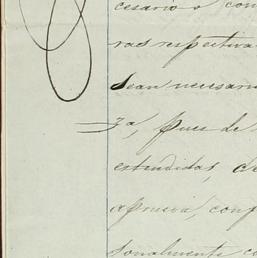 cesario o con
ras respectiva
sean necesari
za, pues de
estendidas, de
aprueva, conf
sonalmente co